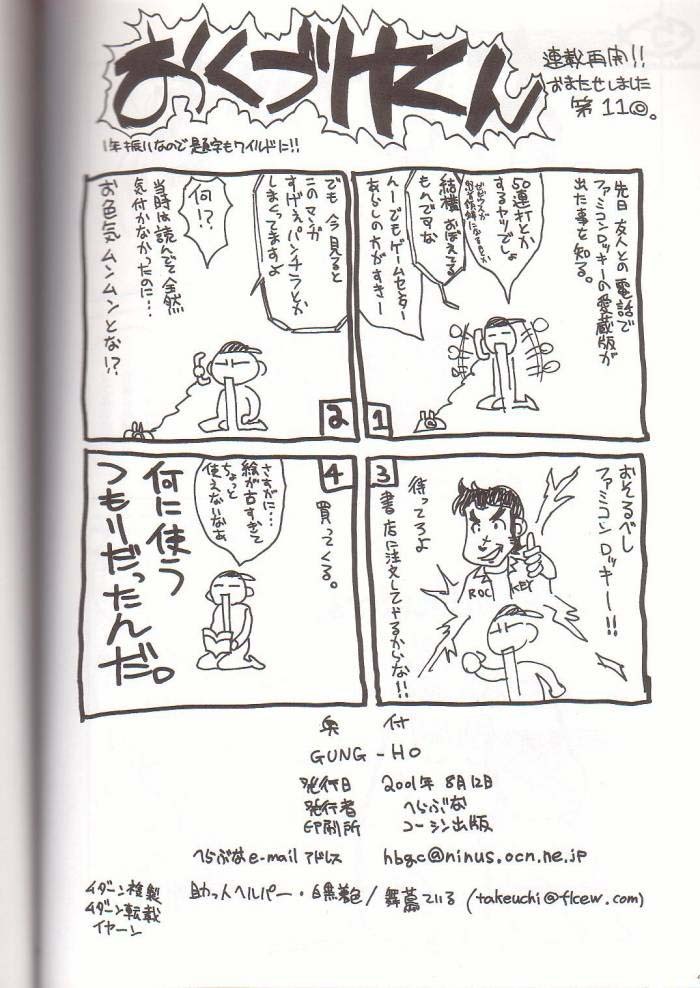 おくづけくん
連載再開!!
おまたせしました
第11回。
1年振りなので題字もワイルドに!!
先日 友人との電話で
ファミコンロッキーの愛蔵版が
出た事を知る。
50連打とか
するヤツでしょ
結構 おぼえてる
もんですな
んー でもゲームセンター
あらしの方がすきー
1
でも 今見ると
このマンガ
すげえパンチラとか
しまくってますよ
何!?
当時は読んでて全然
気付かなかったのに…
お色気ムンムンとな!?
2
おそるべし
ファミコンロッキー!!
ROC KEY
待ってろよ
書店に注文してやるからな!!
3
買ってくる。
さすがに…
絵が古すぎて
ちょっと
使えないなあ
何に使う
つもりだったんだ。
4
奥付
GUNG-HO
発行日 2001年 8月12日
発行者 へらぶな
印刷所 コーシン出版
へらぶなe-mailアドレス hbgc@ninus.ocn.ne.jp
助っ人ヘルパー・白無着色/舞蔦ている (takeuchi@flcew.com)
イダーン複製
ムダーン転載
イヤーン